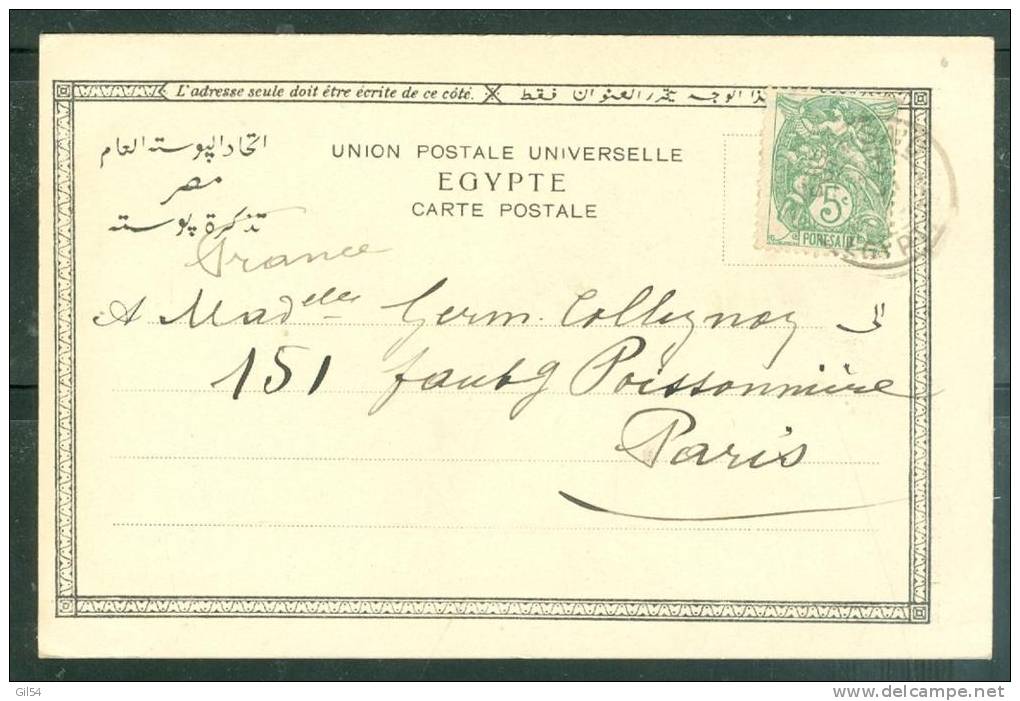 L'adresse seule doit être écrite de ce côté. هذا الوجه يحرر العنوان فقط
اتحاد البوسته العام
مصر
تذكرة بوسته
UNION POSTALE UNIVERSELLE
EGYPTE
CARTE POSTALE
5c
PORT-SAÏD
France
A Madelles Germ. Collignon
الى
151 faubg Poissonnière
Paris
Gil54
www.delcampe.net